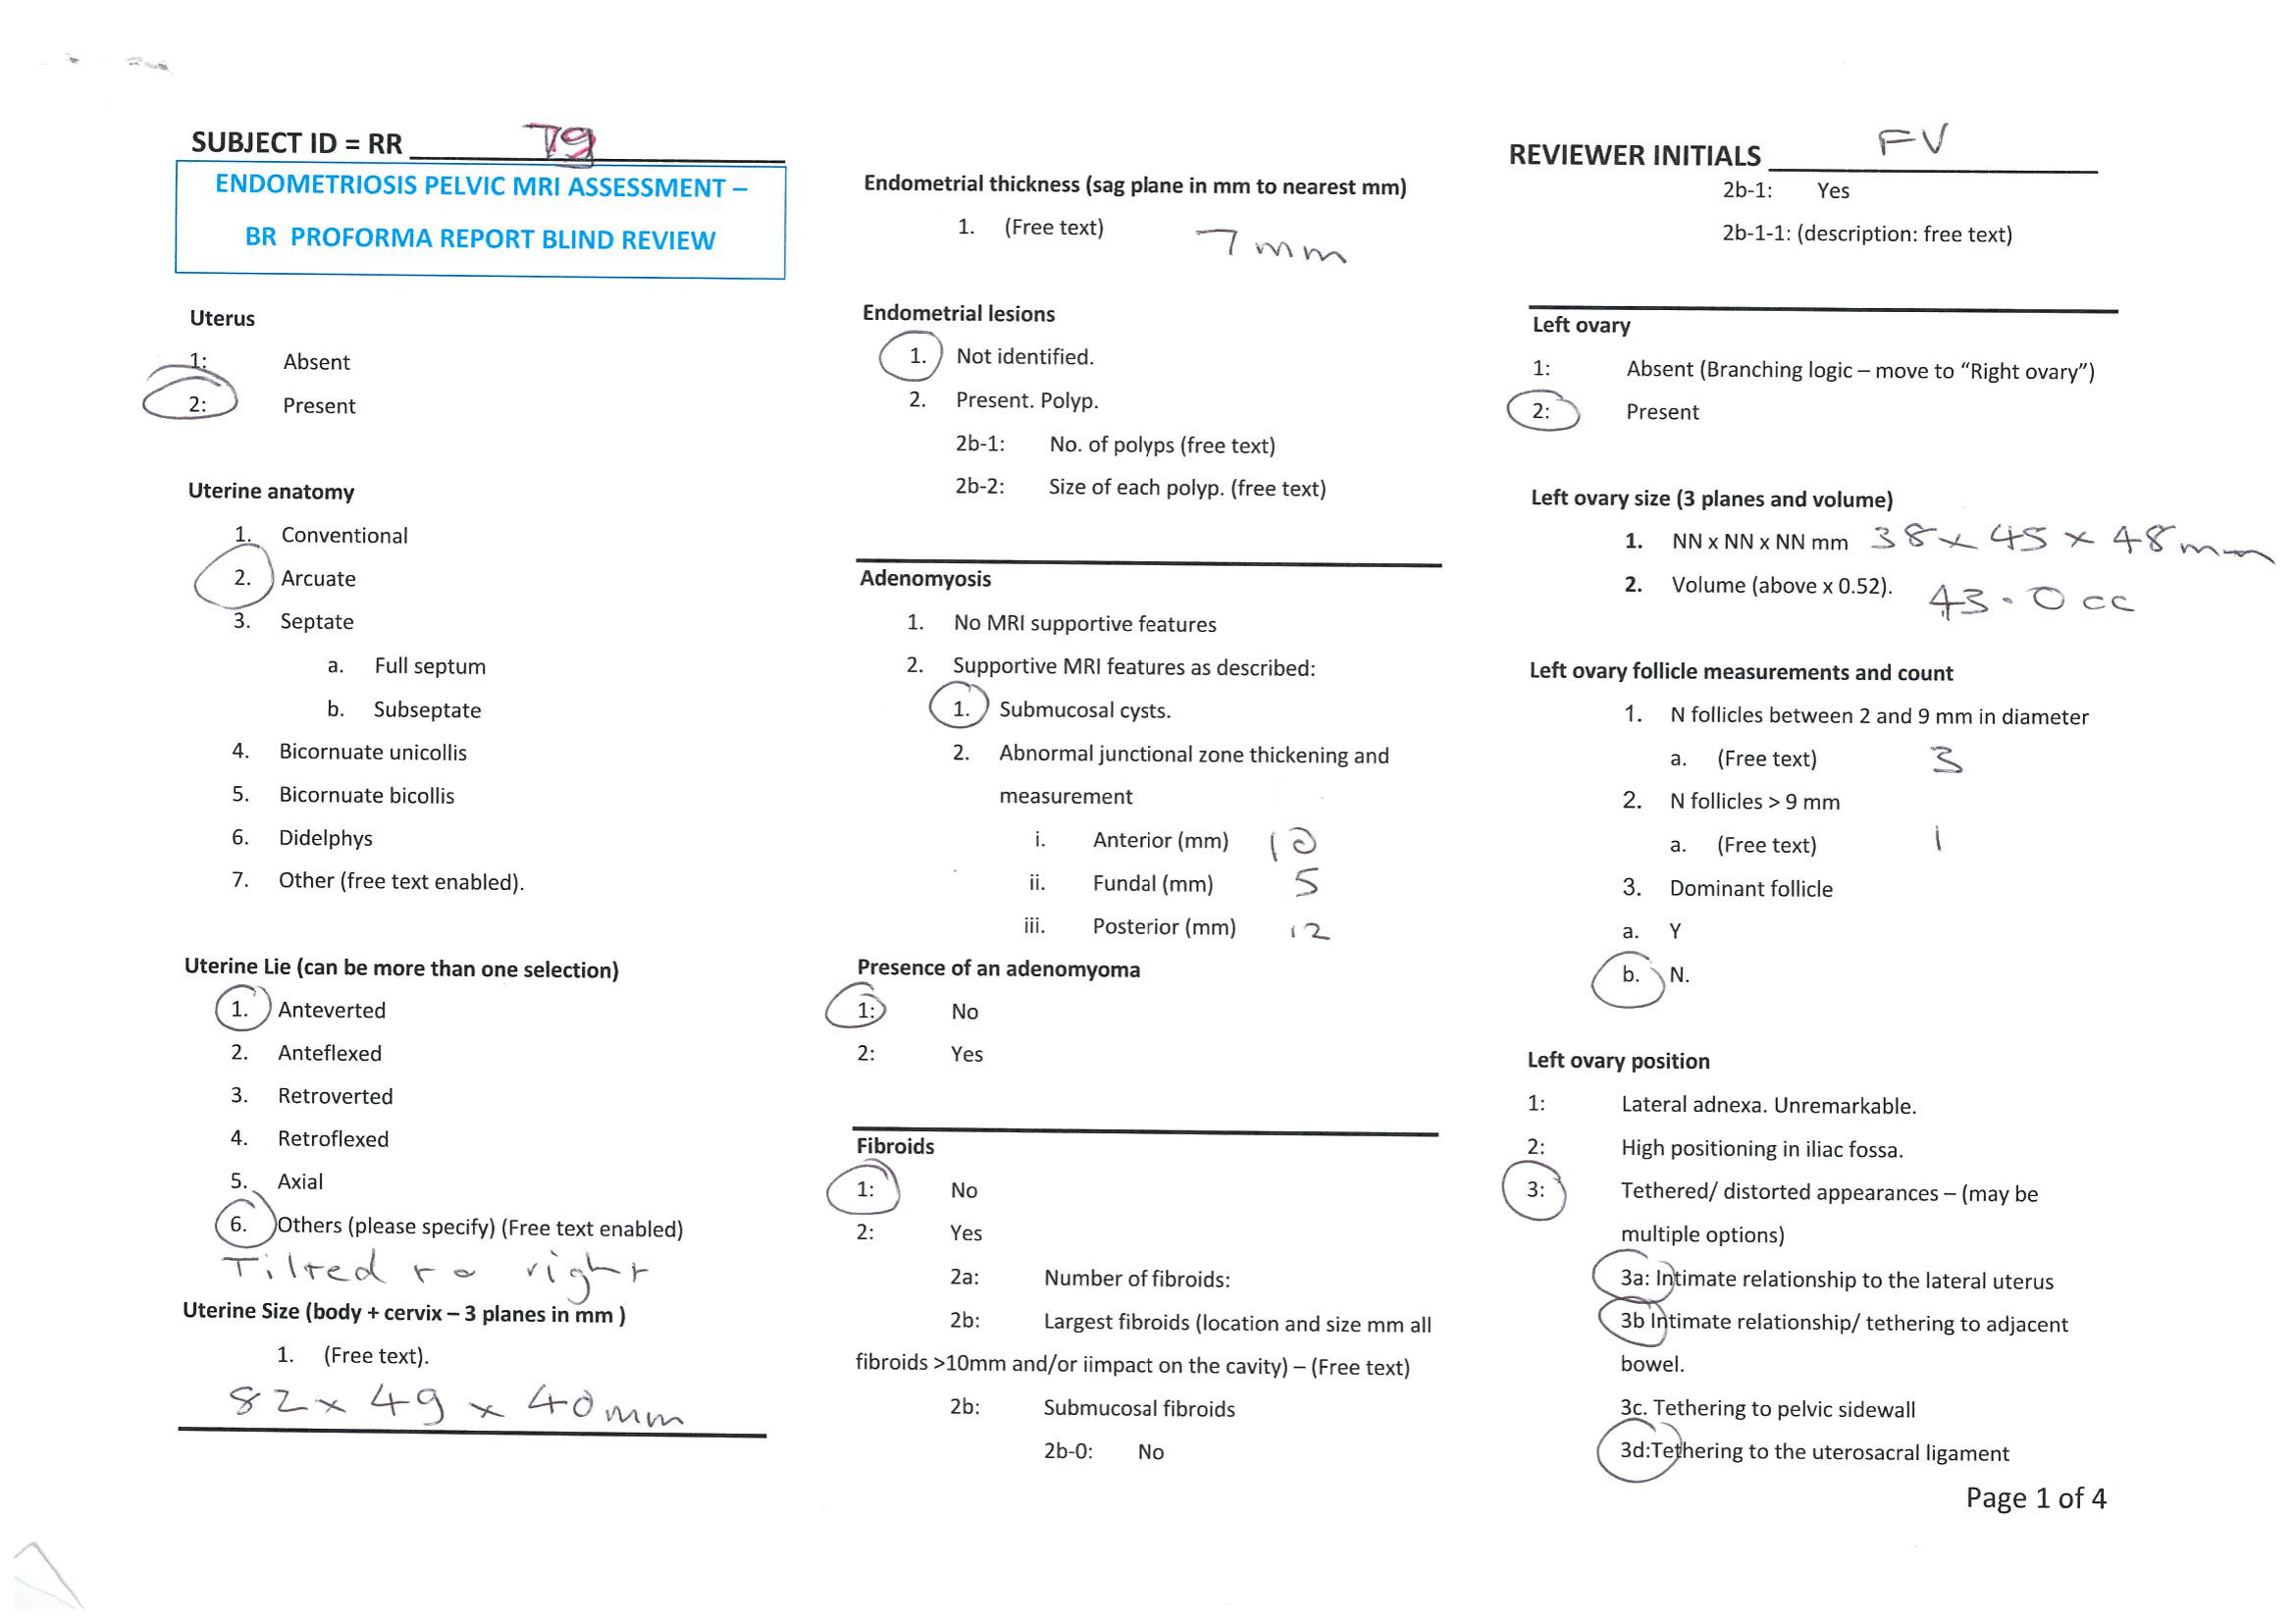 SUBJECT ID = RR 79
ENDOMETRIOSIS PELVIC MRI ASSESSMENT –
BR PROFORMA REPORT BLIND REVIEW
Uterus
1: Absent
2: Present
Uterine anatomy
1. Conventional
2. Arcuate
3. Septate
a. Full septum
b. Subseptate
4. Bicornuate unicollis
5. Bicornuate bicollis
6. Didelphys
7. Other (free text enabled).
Uterine Lie (can be more than one selection)
1. Anteverted
2. Anteflexed
3. Retroverted
4. Retroflexed
5. Axial
6. Others (please specify) (Free text enabled)
Tilted to right
Uterine Size (body + cervix – 3 planes in mm )
1. (Free text).
82 x 49 x 40mm
Endometrial thickness (sag plane in mm to nearest mm)
1. (Free text) 7mm
Endometrial lesions
1. Not identified.
2. Present. Polyp.
2b-1: No. of polyps (free text)
2b-2: Size of each polyp. (free text)
Adenomyosis
1. No MRI supportive features
2. Supportive MRI features as described:
1. Submucosal cysts.
2. Abnormal junctional zone thickening and
measurement
i. Anterior (mm) 10
ii. Fundal (mm) 5
iii. Posterior (mm) 12
Presence of an adenomyoma
1: No
2: Yes
Fibroids
1: No
2: Yes
2a: Number of fibroids:
2b: Largest fibroids (location and size mm all
fibroids >10mm and/or iimpact on the cavity) – (Free text)
2b: Submucosal fibroids
2b-0: No
REVIEWER INITIALS FV
2b-1: Yes
2b-1-1: (description: free text)
Left ovary
1: Absent (Branching logic – move to “Right ovary”)
2: Present
Left ovary size (3 planes and volume)
1. NN x NN x NN mm 38 x 45 x 48mm
2. Volume (above x 0.52). 43.0 cc
Left ovary follicle measurements and count
1. N follicles between 2 and 9 mm in diameter
a. (Free text) 3
2. N follicles > 9 mm
a. (Free text) 1
3. Dominant follicle
a. Y
b. N.
Left ovary position
1: Lateral adnexa. Unremarkable.
2: High positioning in iliac fossa.
3: Tethered/ distorted appearances – (may be
multiple options)
3a: Intimate relationship to the lateral uterus
3b Intimate relationship/ tethering to adjacent
bowel.
3c. Tethering to pelvic sidewall
3d:Tethering to the uterosacral ligament
Page 1 of 4